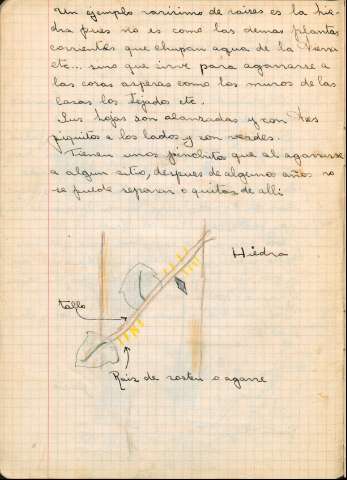 Un ejemplo rarísimo de raices es la hie-
dra pues no es como las demas plantas
corrientes que chupan agua de la tierra
etc... sino que sirve para agarrarse a
las cosas asperas como los muros de las
casas los tejados etc.
Sus hojas son alanzadas y con tres
piquitos a los lados y son verdes.
Tienen unos pinchitos que al agarrarse
a algun sitio, despues de algunos años no
se puede separar o quitar de alli
Hiedra
tallo
Raiz de sosten o agarre